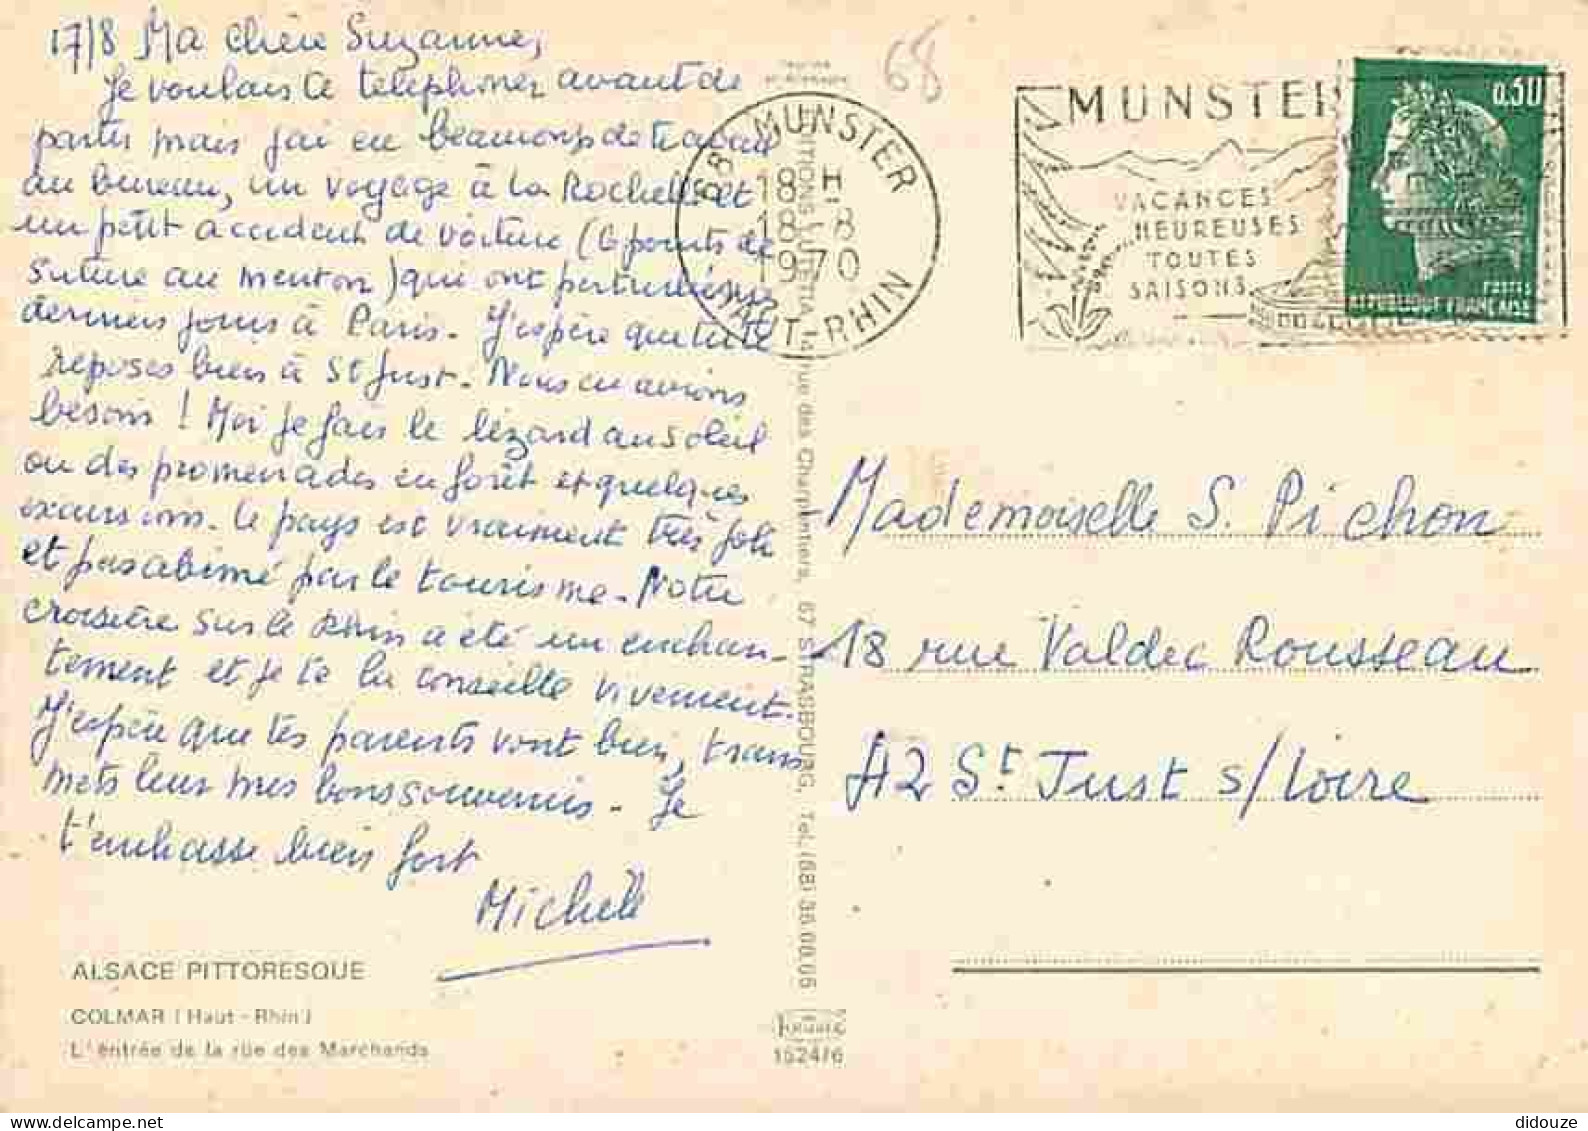 17/8 Ma chère Suzanne,
Je voulais te téléphoner avant de
partir mais j'ai eu beaucoup de travail
au bureau, un voyage à La Rochelle et
un petit accident de voiture (6 points de
suture au menton) qui ont perturbé mes
derniers jours à Paris. J'espère que tu te
reposes bien à St Just. Nous en avions
besoin ! Moi je fais le lézard au soleil
ou des promenades en forêt et quelques
excursions. Le pays est vraiment très joli
et pas abimé par le tourisme. Notre
croisière sur le Rhin a été un enchan-
tement et je te la conseille vivement.
J'espère que tes parents vont bien, trans
mets leur mes bons souvenirs. Je
t'embrasse bien fort
Michèle
ALSACE PITTORESQUE
COLMAR (Haut-Rhin)
L'entrée de la rue des Marchands
68
68 MUNSTER
18 H
18-8
1970
HAUT-RHIN
MUNSTER
VACANCES
HEUREUSES
TOUTES
SAISONS
0,30
POSTES
REPUBLIQUE FRANÇAISE
EDITIONS LUTETIA, rue des Charpentiers, 67 STRASBOURG, Tel. (68)
1524/6
Mademoiselle S. Pichon
18 rue Valdec Rousseau
42 St Just s/Loire
didouze